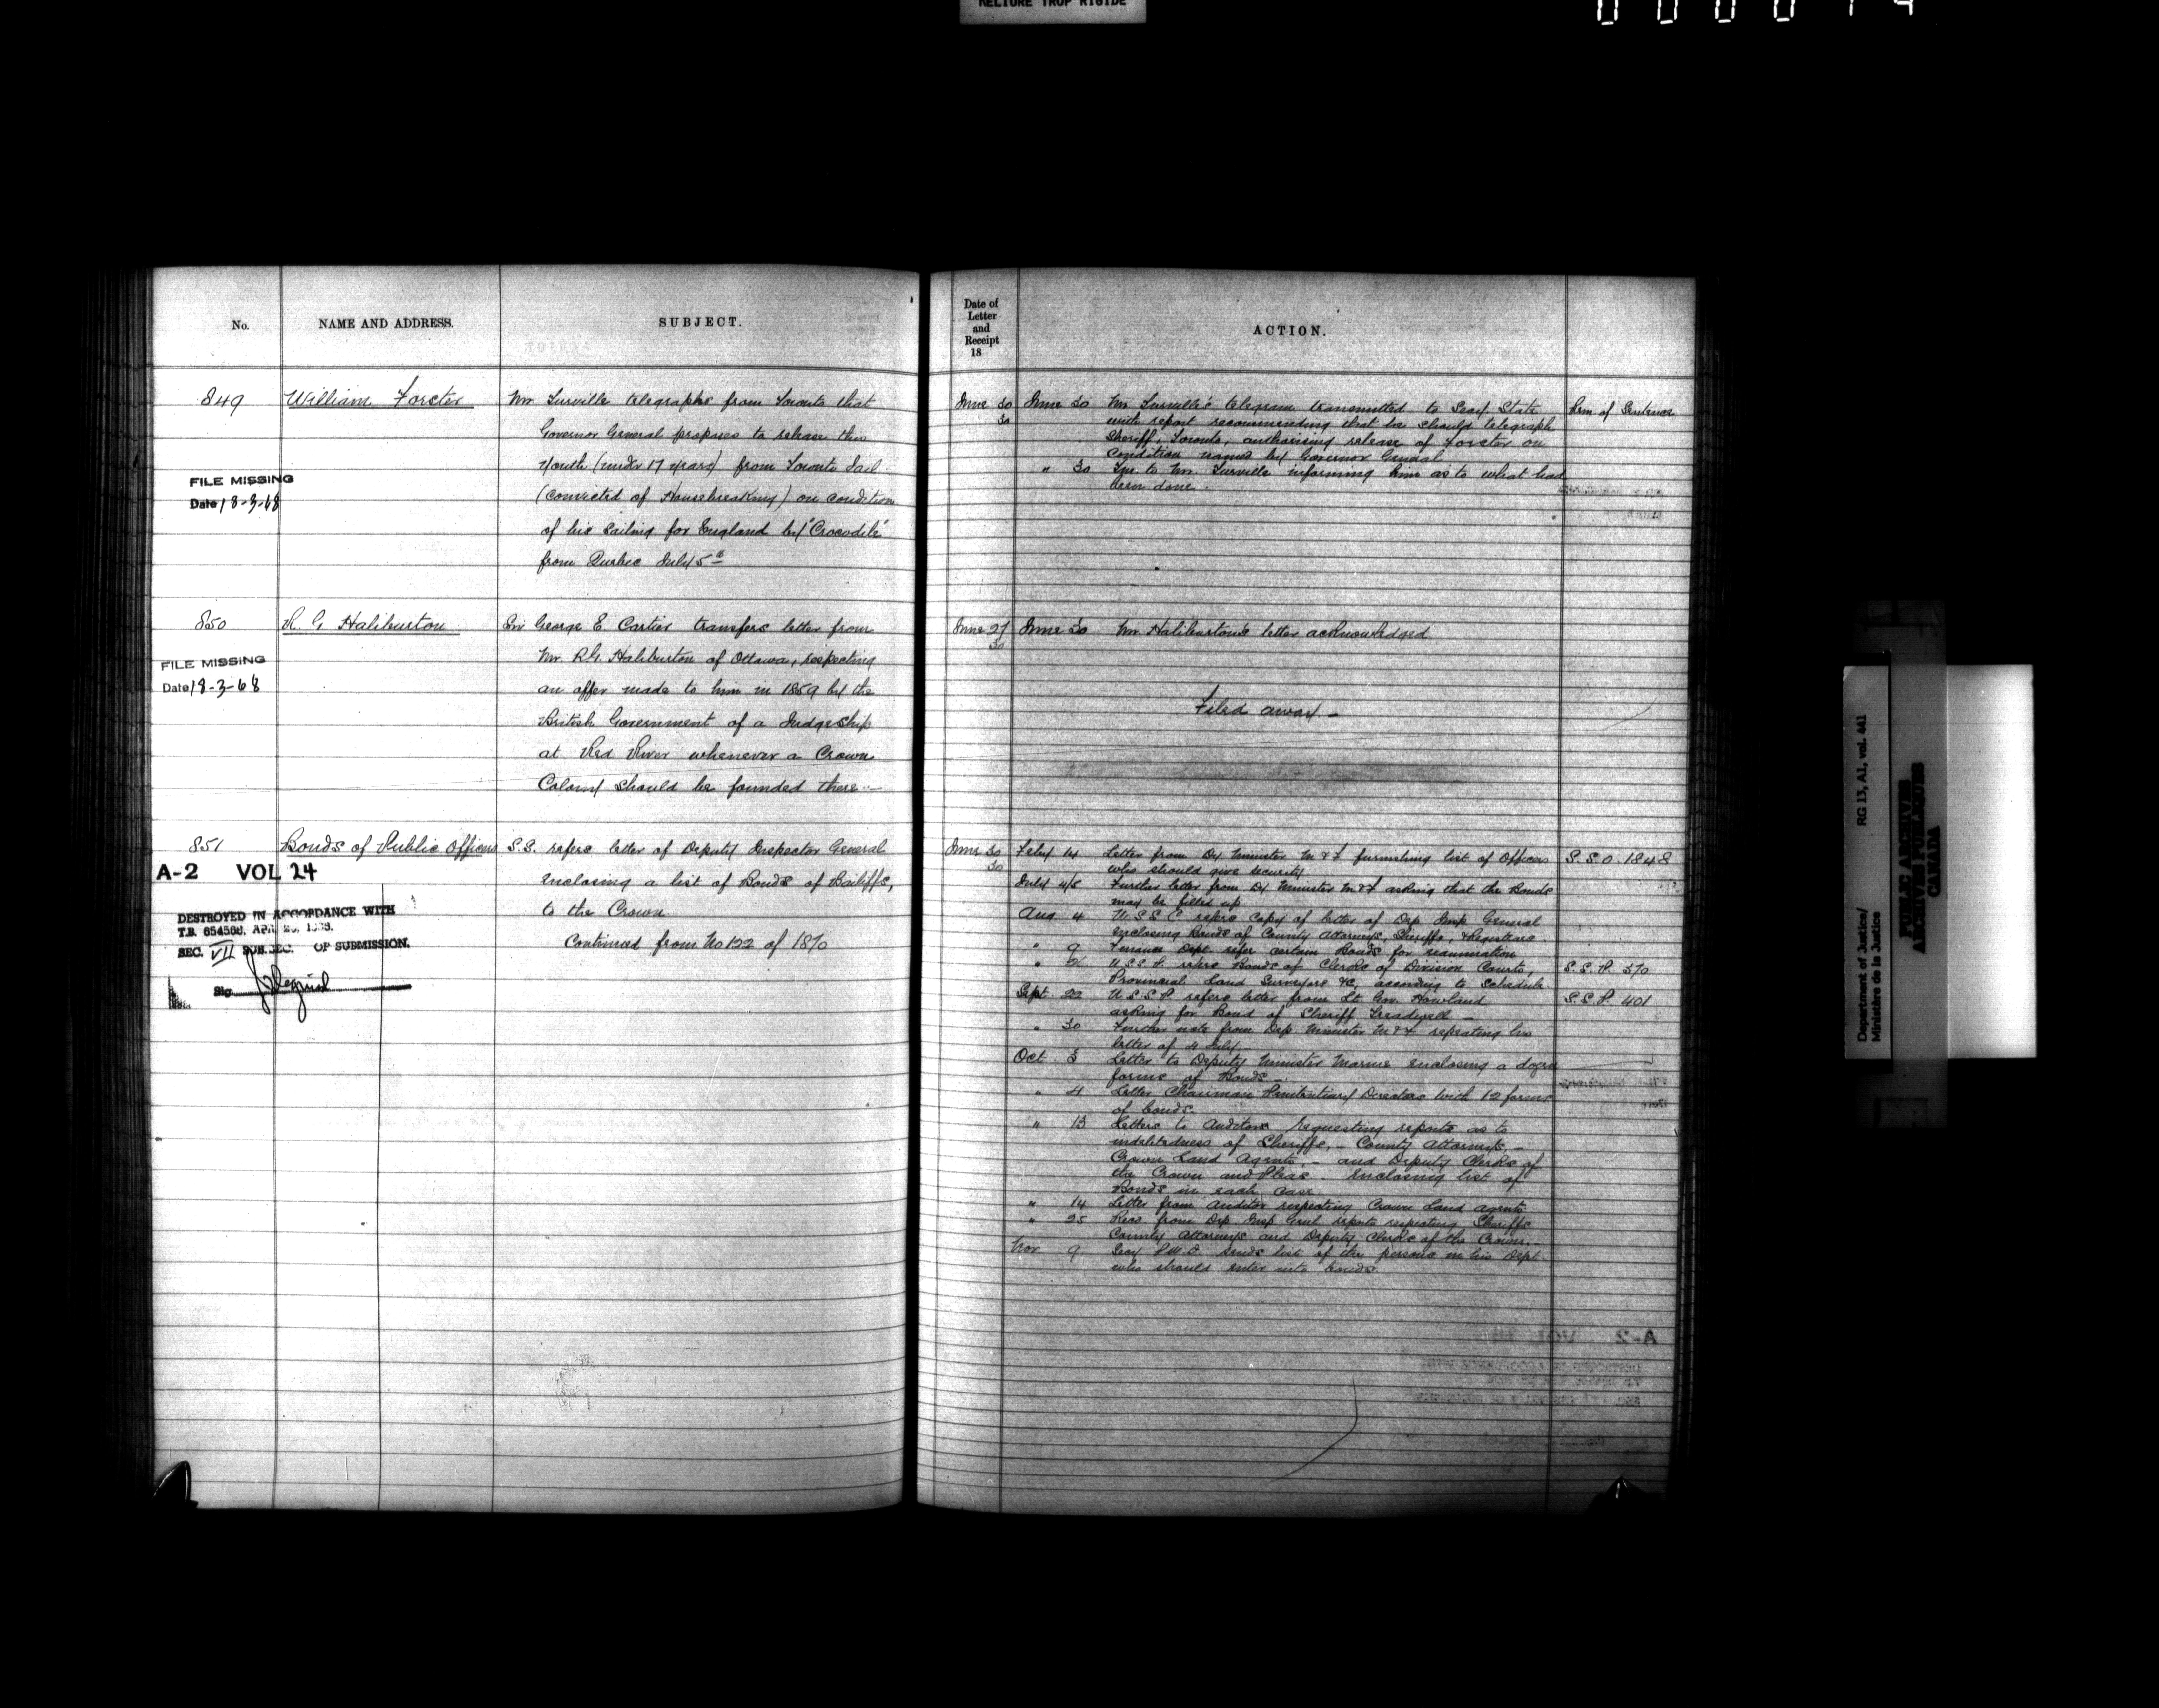 RELIURE TROP RIGIDE
No.
NAME AND ADDRESS.
SUBJECT.
849
William Forster
Mr Turville telegraphs from Toronto that
Governor General proposes to release this
Youth (under 17 years) from Toronto Jail
(convicted of Housebreaking) on condition
of his sailing for England by "Crocodile"
from Quebec July 5th
FILE MISSING
Date 18-3-68
850
R. G Haliburton
Sir George E. Cartier transfers letter from
Mr. R.G. Haliburton of Ottawa, respecting
an offer made to him in 1859 by the
British Government of a Judgeship
at Red River whenever a Crown
Colony should be founded there —
FILE MISSING
Date 18-3-68
851
Bonds of Public Officers
S.S. refers letter of Deputy Inspector General
enclosing a list of Bonds of Bailiffs,
to the Crown
Continued from No 122 of 1870
A-2 VOL 24
DESTROYED IN ACCORDANCE WITH
T.B. 654568, APR.
SEC. VII SUB.SEC. OF SUBMISSION.
Sig.
Date of
Letter
and
Receipt
18
ACTION.
June 30 June 30 Mr Turville's telegram transmitted to Secy State Rem of Sentence
30 with report recommending that he should telegraph
Sheriff, Toronto, authorising release of Forster on
condition named by Governor General
" 30 Lr. to Mr. Turville informing him as to what had
been done.
June 27 June 30 Mr Haliburton's letter acknowledged
30
Filed away —
June 30 Feby 14 Letter from Dy Minister M & F furnishing list of Officers S.S.O. 1848
30 who should give security
July 4/5 Further letter from Dy Minister M & F asking that the Bonds
may be filled up
Aug. 4 U.S.S.C. refers copy of letter of Dep Insp General
enclosing Bonds of County Attorneys, Sheriffs, & Registrars.
" 9 Finance Dept. refer certain Bonds for examination
" U.S.S.P. refers Bonds of Clerks of Division Courts, S.S.P. 370
Provincial Land Surveyors &c, according to Schedule
Sept. 22 U.S.S.P. refers letter from Lt. Gov. Howland S.S.P. 401
asking for Bond of Sheriff Treadwell —
" 30 Further note from Dep Minister M & F repeating his
letter of 4 July —
Oct. 3 Letter to Deputy Minister Marine enclosing a dozen
forms of Bonds —
" 4 Letter Chairman Penitentiary Directors with 12 forms
of bonds.
" 13 Letters to Auditors requesting reports as to
indebtedness of Sheriffs, — County Attorneys, —
Crown Land Agents — and Deputy Clerks of
the Crown and Pleas — Enclosing list of
Bonds in each case
" 14 Letter from Auditor respecting Crown Land Agents
" 25 Recd from Dep Insp Genl reports respecting Sheriffs
County Attorneys and Deputy Clerks of the Crown.
Nov 9 Secy P.W.D. sends list of the persons in his Dept
who should enter into bonds.
Department of Justice/
Ministère de la Justice
RG 13, A1, vol. 441
PUBLIC ARCHIVES
ARCHIVES PUBLIQUES
CANADA